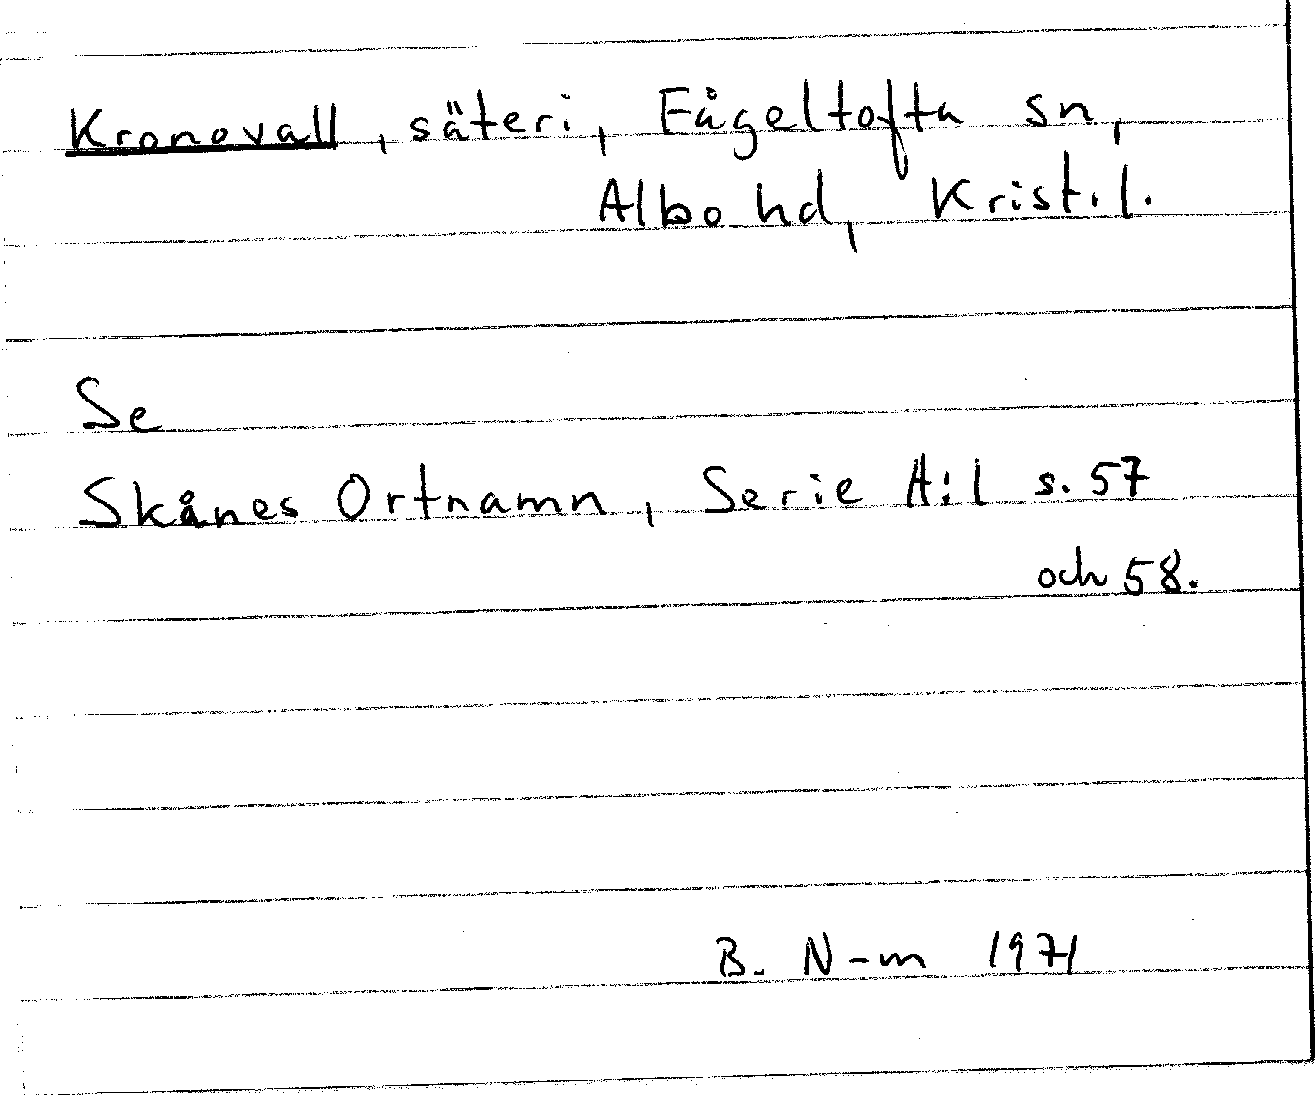 Kronovall, säteri, Fågeltofta sn,
Albo hd, Krist. l.
Se
Skånes Ortnamn, Serie A:1 s. 57
och 58.
B. N-m 1971